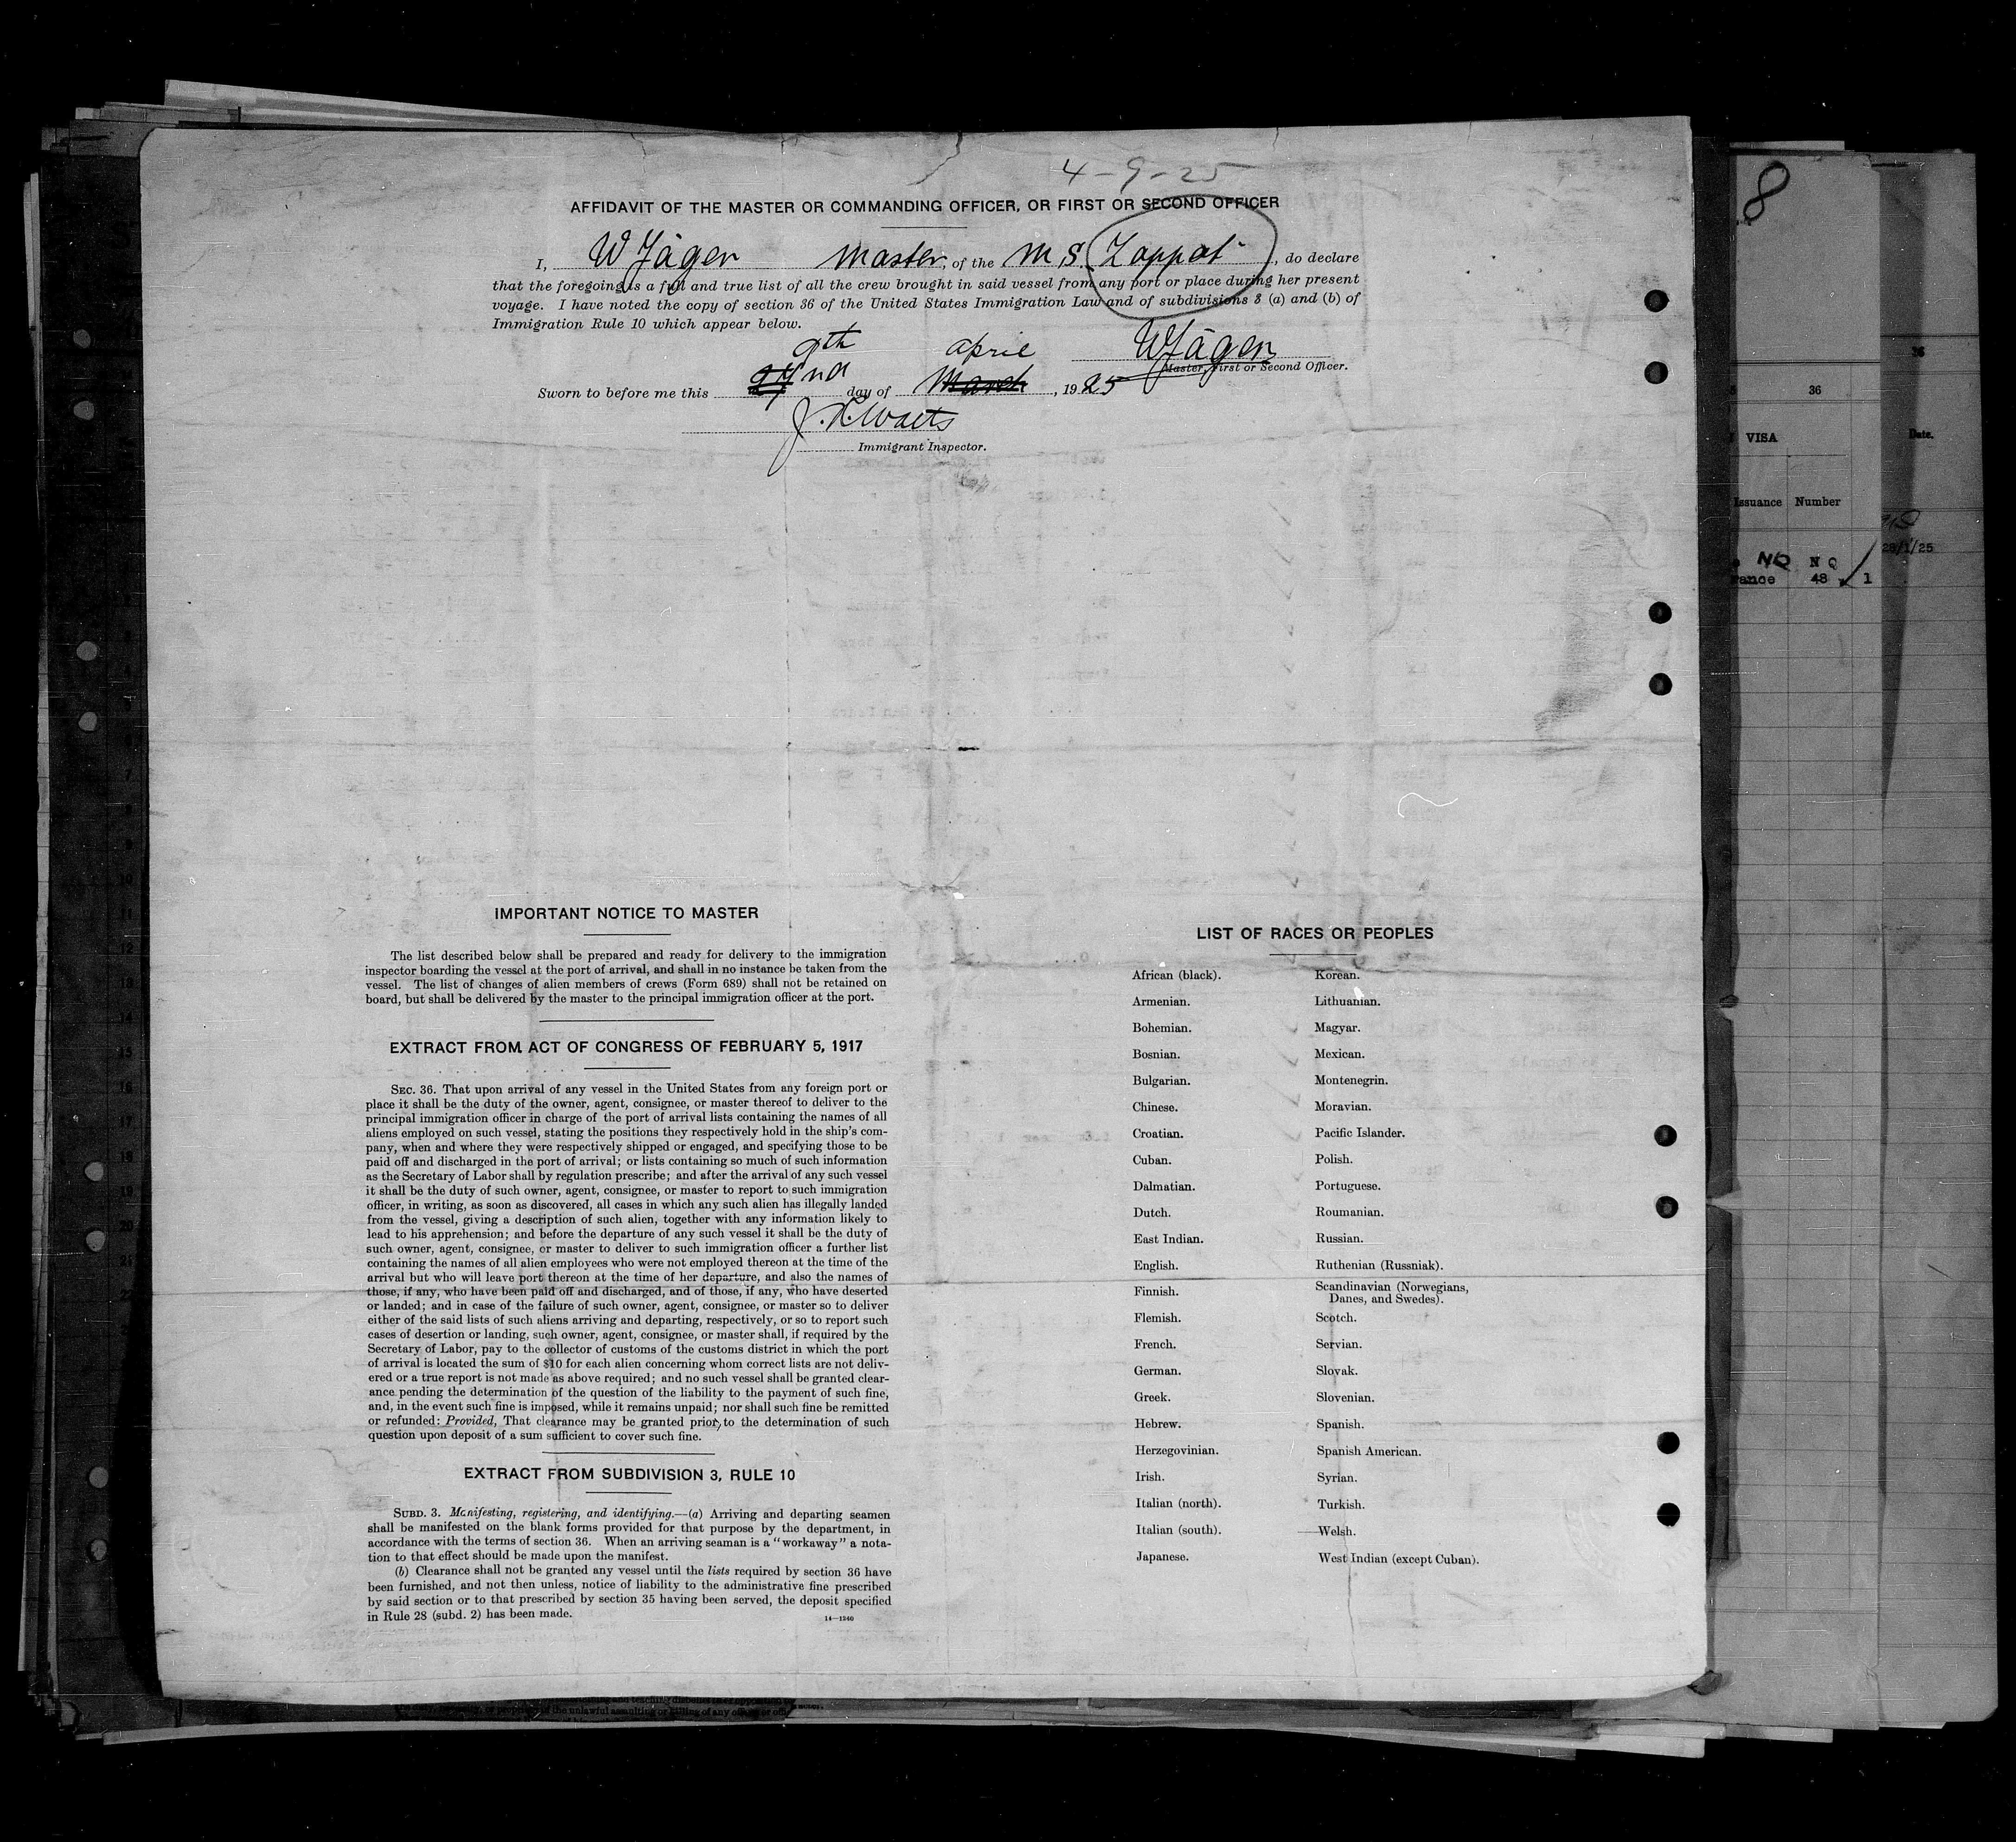 4-9-25
AFFIDAVIT OF THE MASTER OR COMMANDING OFFICER, OR FIRST OR SECOND OFFICER
I, W Jäger Master, of the M.S. Zoppot, do declare
that the foregoing is a full and true list of all the crew brought in said vessel from any port or place during her present
voyage. I have noted the copy of section 36 of the United States Immigration Law and of subdivisions 3 (a) and (b) of
Immigration Rule 10 which appear below.
9th april W Jäger
Master, First or Second Officer.
Sworn to before me this nd day of March, 1925
Immigrant Inspector.
IMPORTANT NOTICE TO MASTER
The list described below shall be prepared and ready for delivery to the immigration
inspector boarding the vessel at the port of arrival, and shall in no instance be taken from the
vessel. The list of changes of alien members of crews (Form 689) shall not be retained on
board, but shall be delivered by the master to the principal immigration officer at the port.
EXTRACT FROM ACT OF CONGRESS OF FEBRUARY 5, 1917
SEC. 36. That upon arrival of any vessel in the United States from any foreign port or
place it shall be the duty of the owner, agent, consignee, or master thereof to deliver to the
principal immigration officer in charge of the port of arrival lists containing the names of all
aliens employed on such vessel, stating the positions they respectively hold in the ship's com-
pany, when and where they were respectively shipped or engaged, and specifying those to be
paid off and discharged in the port of arrival; or lists containing so much of such information
as the Secretary of Labor shall by regulation prescribe; and after the arrival of any such vessel
it shall be the duty of such owner, agent, consignee, or master to report to such immigration
officer, in writing, as soon as discovered, all cases in which any such alien has illegally landed
from the vessel, giving a description of such alien, together with any information likely to
lead to his apprehension; and before the departure of any such vessel it shall be the duty of
such owner, agent, consignee, or master to deliver to such immigration officer a further list
containing the names of all alien employees who were not employed thereon at the time of the
arrival but who will leave port thereon at the time of her departure, and also the names of
those, if any, who have been paid off and discharged, and of those, if any, who have deserted
or landed; and in case of the failure of such owner, agent, consignee, or master so to deliver
either of the said lists of such aliens arriving and departing, respectively, or so to report such
cases of desertion or landing, such owner, agent, consignee, or master shall, if required by the
Secretary of Labor, pay to the collector of customs of the customs district in which the port
of arrival is located the sum of $10 for each alien concerning whom correct lists are not deliv-
ered or a true report is not made as above required; and no such vessel shall be granted clear-
ance pending the determination of the question of the liability to the payment of such fine,
and, in the event such fine is imposed, while it remains unpaid; nor shall such fine be remitted
or refunded: Provided, That clearance may be granted prior to the determination of such
question upon deposit of a sum sufficient to cover such fine.
EXTRACT FROM SUBDIVISION 3, RULE 10
SUBD. 3. Manifesting, registering, and identifying.—(a) Arriving and departing seamen
shall be manifested on the blank forms provided for that purpose by the department, in
accordance with the terms of section 36. When an arriving seaman is a "workaway" a nota-
tion to that effect should be made upon the manifest.
(b) Clearance shall not be granted any vessel until the lists required by section 36 have
been furnished, and not then unless, notice of liability to the administrative fine prescribed
by said section or to that prescribed by section 35 having been served, the deposit specified
in Rule 28 (subd. 2) has been made.
14—1240
LIST OF RACES OR PEOPLES
African (black).
Armenian.
Bohemian.
Bosnian.
Bulgarian.
Chinese.
Croatian.
Cuban.
Dalmatian.
Dutch.
East Indian.
English.
Finnish.
Flemish.
French.
German.
Greek.
Hebrew.
Herzegovinian.
Irish.
Italian (north).
Italian (south).
Japanese.
Korean.
Lithuanian.
Magyar.
Mexican.
Montenegrin.
Moravian.
Pacific Islander.
Polish.
Portuguese.
Roumanian.
Russian.
Ruthenian (Russniak).
Scandinavian (Norwegians,
Danes, and Swedes).
Scotch.
Servian.
Slovak.
Slovenian.
Spanish.
Spanish American.
Syrian.
Turkish.
Welsh.
West Indian (except Cuban).
8
36
VISA
Issuance Number
NQ N Q
48 1
36
Date.
28/1/25